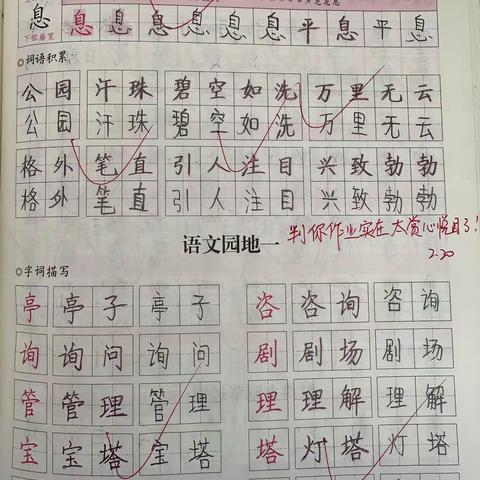 息 息 息 息 息 息 息 平 息 平 息
下部扁宽
词语积累
公园 汗珠 碧空如洗 万里无云
公园 汗珠 碧空如洗 万里无云
格外 笔直 引人注目 兴致勃勃
格外 笔直 引人注目 兴致勃勃
语文园地一
判你作业实在太赏心悦目了!
2.20
字词描写
亭 亭子 亭子 咨 咨询 咨询
询 询问 询问 剧 剧场 剧场
管 管理 管理 理 理解 理解
宝 宝塔 宝塔 塔 灯塔 灯塔